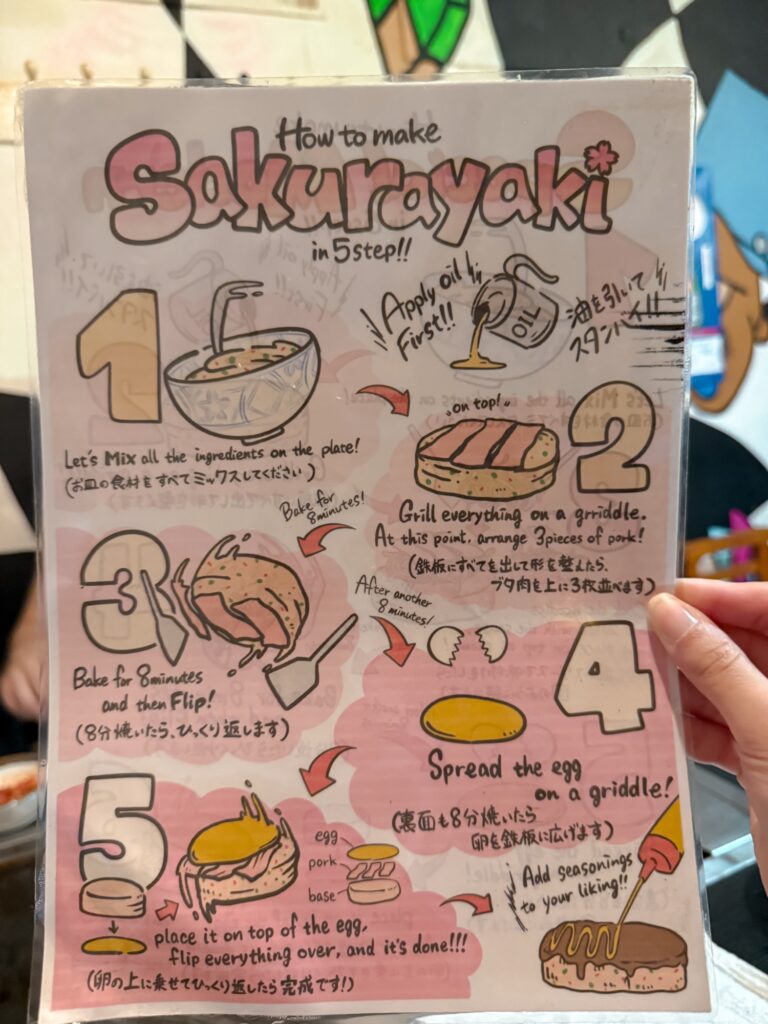 How to make
Sakurayaki
in 5step!!
Apply oil
First!!
OIL
油を引いて
スタンバイ!!
1
Let's Mix all the ingredients on the plate!
(お皿の食材をすべてミックスしてください)
"on top!"
2
Grill everything on a grriddle.
At this point, arrange 3pieces of pork!
(鉄板にすべてを出して形を整えたら、
ブタ肉を上に3枚並べます)
Bake for
8minutes!
3
Bake for 8minutes
and then Flip!
(8分焼いたら、ひっくり返します)
After another
8 minutes!
4
Spread the egg
on a griddle!
(裏面も8分焼いたら
卵を鉄板に広げます)
5
egg
pork
base
place it on top of the egg,
flip everything over, and it's done!!!
(卵の上に乗せてひっくり返したら完成です!)
Add seasonings
to your liking!!